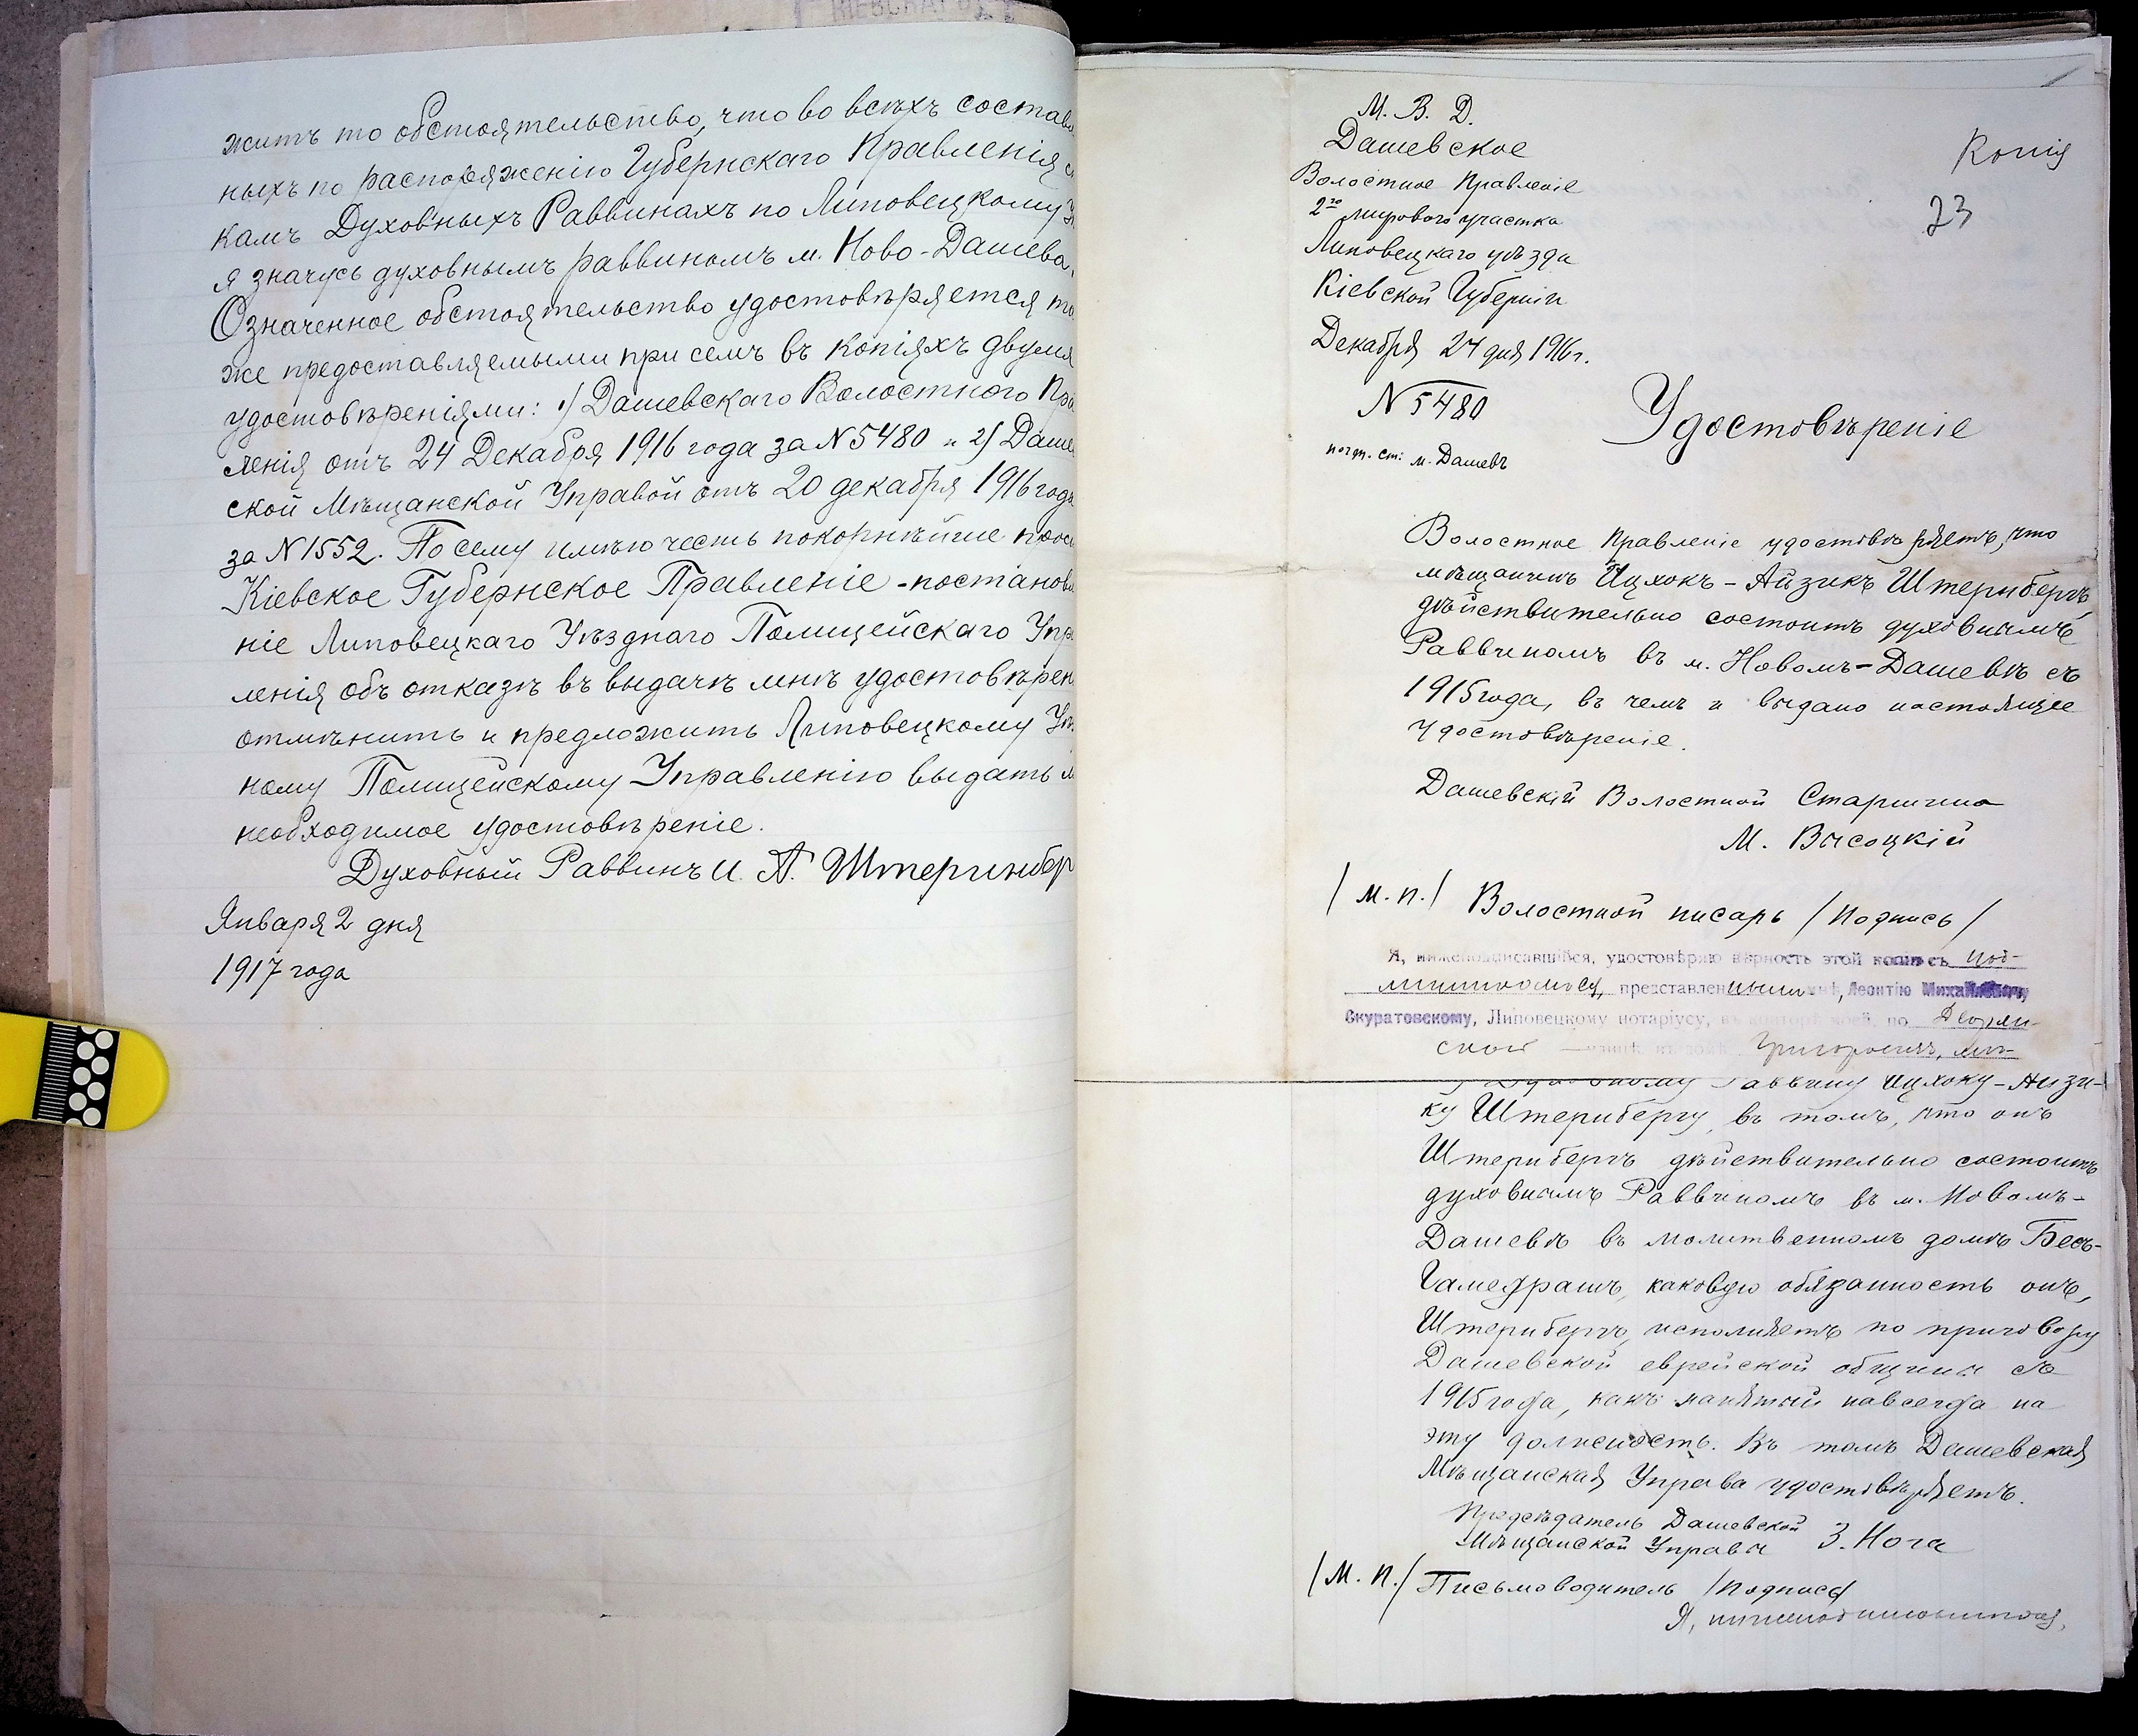 жить то обстоятельство, что во всѣхъ состав
ныхъ по распоряженію Губернскаго Правленія с
камъ Духовныхъ Раввинахъ по Липовецкому У
я значусь духовнымъ раввиномъ м. Ново-Дашева.
Означенное обстоятельство удостовѣряется та
же предоставляемыми при семъ въ копіяхъ двумя
удостовѣреніями: 1/ Дашевскаго Волостного Пра
ленія отъ 24 Декабря 1916 года за N 5480 и 2/ Даше
ской Мѣщанской Управой отъ 20 декабря 1916 года
за N 1552. По сему имѣю честь покорнѣйше прос
Кіевское Губернское Правленіе - постановл
ніе Липовецкаго Уѣзднаго Полицейскаго Упр
ленія объ отказѣ въ выдачѣ мнѣ удостовѣрен
отмѣнить и предложить Липовецкому Уѣ
ному Полицейскому Управленію выдать м
необходимое удостовѣреніе.
Духовный Раввинъ И. А. Штернбер
Января 2 дня
1917 года
М. В. Д.
Дашевское
Копія
Волостное Правленіе
23
2го мирового участка
Липовецкаго уѣзда
Кіевской Губерніи
Декабря 24 дня 1916 г.
N 5480
Удостовѣреніе
почт. ст: м. Дашевъ
Волостное Правленіе удостовѣряетъ, что
мѣщанинъ Ицхокъ-Айзикъ Штернбергъ,
дѣйствительно состоитъ духовнымъ
Раввиномъ въ м. Новомъ-Дашевѣ съ
1915 года, въ чемъ и выдано настоящее
удостовѣреніе.
Дашевскій Волостной Старшина
М. Высоцкій
/ М. П. / Волостной писарь / Подпись /
Я, нижеподписавшійся, удостовѣряю вѣрность этой копіи съ под-
линникомъ ея, представленнымъ мнѣ, Леонтію Михайловичу
Скуратовскому, Липовецкому нотаріусу, въ конторѣ моей, по Дворян-
ской
Духовному Раввину Ицхоку-Айзи-
ку Штернбергу, въ томъ, что онъ
Штернбергъ дѣйствительно состоитъ
духовнымъ Раввиномъ въ м. Новомъ-
Дашевѣ въ молитвенномъ домѣ Бесъ-
Гамедрашъ, каковую обязанность онъ,
Штернбергъ, исполняетъ по приговору
Дашевской еврейской общины съ
1915 года, какъ нанятый навсегда на
эту должность. Въ томъ Дашевская
Мѣщанская Управа удостовѣряетъ.
Предсѣдатель Дашевской
Мѣщанской Управы З. Нога
/ М. П. / Письмоводитель / Подпись /
Я, нижеподписавшійся,